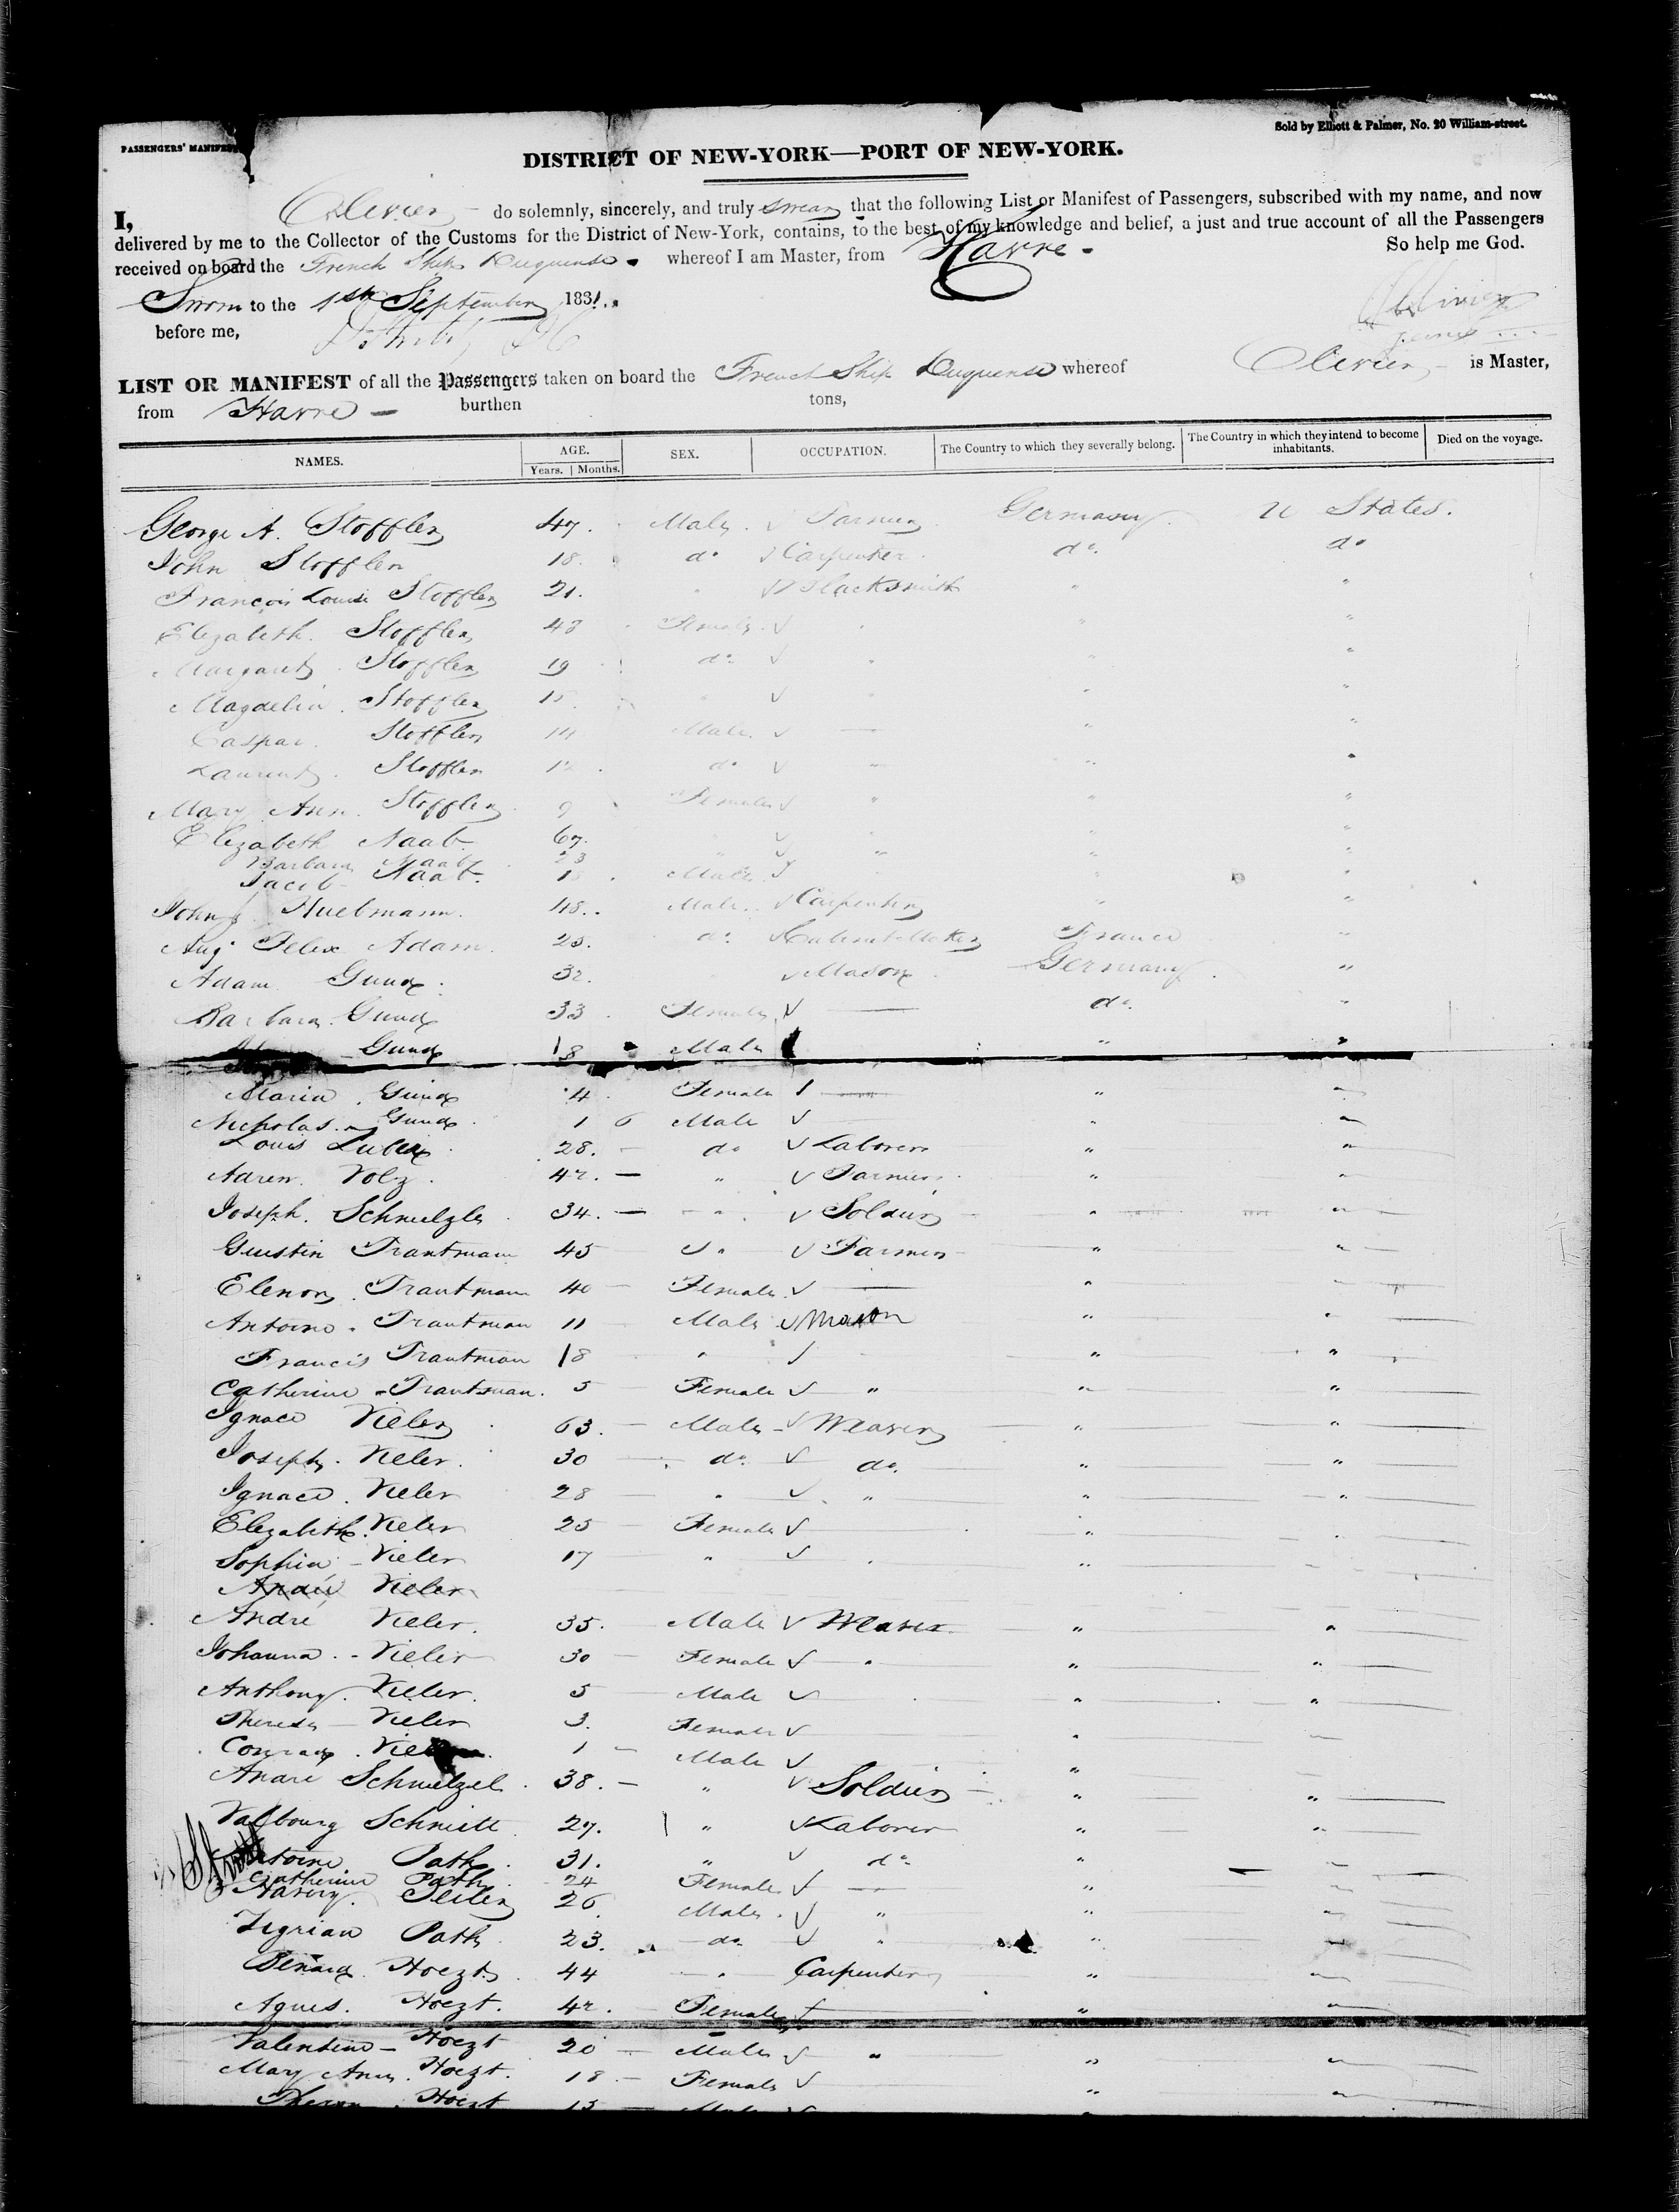 PASSENGERS' MANIFEST
Sold by Elliott & Palmer, No. 20 William-street.
DISTRICT OF NEW-YORK—PORT OF NEW-YORK.
I, Olivier do solemnly, sincerely, and truly swear that the following List or Manifest of Passengers, subscribed with my name, and now
delivered by me to the Collector of the Customs for the District of New-York, contains, to the best of my knowledge and belief, a just and true account of all the Passengers
received on board the French Ship whereof I am Master, from Havre - So help me God.
Sworn to the 1st September 1831.
before me,
LIST OR MANIFEST of all the Passengers taken on board the French Ship whereof Olivier is Master,
from Havre - burthen tons,
NAMES. AGE. SEX. OCCUPATION. The Country to which they severally belong. The Country in which they intend to become inhabitants. Died on the voyage.
Years. Months.
George A. Stoffler 47. Male Farmer Germany U States.
John Stoffler 18. do Carpenter do. do
François Louis Stoffler 21. " Blacksmith " "
Elizabeth. Stoffler 43 Female " "
Margaret Stoffler 19 do. " " "
Magdelin. Stoffler 15 " " " "
Caspar. Stoffler 14 Male — " "
Laurent. Stoffler 12 do " "
Mary Ann. Stoffler 9 Female " " "
Elizabeth Naab 67. " " "
Barbara Naab 23 " " " "
Jacob Naab. 18 Male " "
John Huelmann. 48. Male Carpenter " "
Aug. Felix Adam 25. do. Cabinet Maker France "
Adam Gund 32. Mason Germany "
Barbara Gund 33 Female — do. "
Gund 8 Male " "
Maria Gund 4 Female — " "
Nicholas Gund 1 6 Male " "
Louis 28. do Laborer " "
Adren. Volz 42. " Farmer " "
Joseph. Schmelzle 34. " Soldier " "
Gustin Trautman 45 " Farmer " "
Elenor Trautman 40 Female — " "
Antoine. Trautman 11 Male Mason " "
Francis Trautman 8 " " "
Catherine Trautman. 5 Female " " "
Ignace Vieler 63. Male Weaver " "
Joseph. Vieler 30 do. do. " "
Ignace. Vieler 28 " " " "
Elizabeth. Vieler 25 Female " "
Sophia Vieler 17 " " "
André Vieler
André Vieler. 35. Male Weaver " "
Johanna. Vieler 30 Female " " "
Anthony. Vieler. 5 Male " "
Theresa Vieler 3. Female " "
Conrad. 1 Male " "
André Schmelzel 38. " Soldier " "
Valbourg Schmitt 27. " Laborer " "
Antoine Path 31. " do. " "
Catherine Path 24 Female — " "
26 Male " " "
Path 23. do " " "
Benard. Hoezt 44 " Carpenter " "
Agnes. Hoezt. 42. Female " "
Valentine Hoezt 20 Male " " "
Mary Ann. Hoezt. 18 Female " "
Hoezt 15